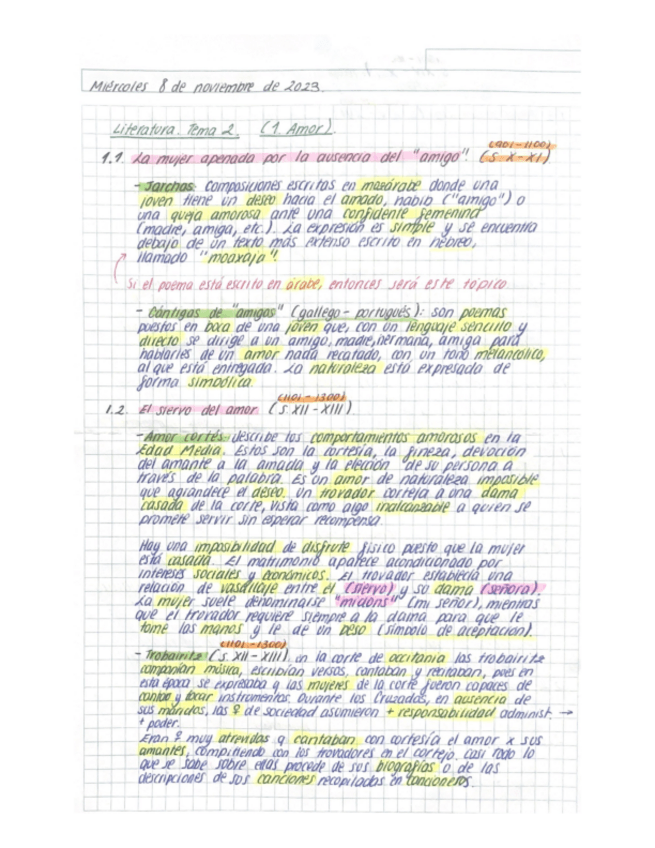 Miércoles 8 de noviembre de 2023.
Literatura. Tema 2. (1. Amor).
(901-1100)
1.1. La mujer apenada por la ausencia del "amigo". (S. X-XI)
- Jarchas: composiciones escritas en mozárabe donde una
joven tiene un deseo hacia el amado, habib ("amigo") o
una queja amorosa ante una confidente femenina
(madre, amiga, etc.). La expresión es simple y se encuentra
debajo de un texto más extenso escrito en hebreo,
llamado "moaxaja".
Si el poema está escrito en árabe, entonces será este tópico
- Cántigas de "amigos" (gallego-portugués): son poemas
puestos en boca de una joven que, con un lenguaje sencillo y
directo se dirige a un amigo, madre, hermana, amiga para
hablarles de un amor nada recatado, con un tono melancólico,
al que está entregada. La naturaleza está expresada de
forma simbólica.
(1101-1300)
1.2. El siervo del amor. (S. XII-XIII)
- Amor cortés: describe los comportamientos amorosos en la
Edad Media. Estos son la cortesía, la fineza, devoción
del amante a la amada y la elección de su persona a
través de la palabra. Es un amor de naturaleza imposible
que agrandece el deseo. Un trovador corteja a una dama
casada de la corte, vista como algo inalcanzable a quien se
promete servir sin esperar recompensa.
Hay una imposibilidad de disfrute físico puesto que la mujer
está casada. El matrimonio aparece acondicionado por
intereses sociales y económicos. El trovador establecía una
relación de vasallaje entre él (siervo) y su dama (señora).
La mujer suele denominarse "midons" (mi señor), mientras
que el trovador requiere siempre a la dama para que le
tome las manos y le de un beso (símbolo de aceptación).
(1101-1300)
- Trobairitz (S. XII-XIII): en la corte de occitania las trobairitz
componían música, escribían versos, cantaban y recitaban, pues en
esta época se expresaba q las mujeres de la corte fueron capaces de
cantar y tocar instrumentos. Durante las Cruzadas, en ausencia de
sus maridos, las ♀ de sociedad asumieron + responsabilidad administ. →
+ poder.
Eran ♀ muy atrevidas q cantaban con cortesía el amor x sus
amantes, compitiendo con los trovadores en el cortejo. Casi todo lo
que se sabe sobre ellas procede de sus biografías o de las
descripciones de sus canciones recopiladas en cancioneros.